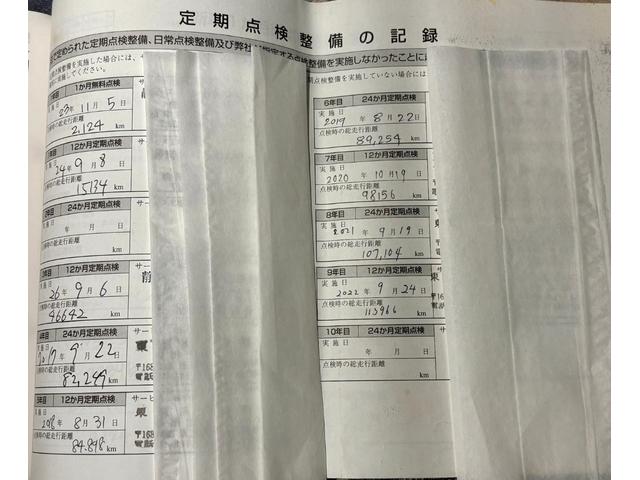 定期点検整備の記録
で定められた定期点検整備、日常点検整備及び弊社
指定する点検整備を実施しなかったことに
点検整備を実施した場合には、
実施してください。
期点検整備を実施していない場合には
1か月無料点検
実施日 23年 11月 5日
点検時の総走行距離
2,124 km
12か月定期点検
24年 9月 8日
総走行距離
15134 km
24か月定期点検
年 月 日
総走行距離
km
12か月定期点検
サー
26年 9月 6日
静
総走行距離
46642 km
24か月定期点検
サービ
2017年 9月 22日
東
総走行距離
〒168
電話
82,249 km
12か月定期点検
サービ
2018年 8月 31日
総走行距離
〒168
電話
84,898 km
6年目 24か月定期点検
実施日
2019年 8月 22日
点検時の総走行距離
89,254 km
7年目 12か月定期点検
実施日
2020年 10月 19日
点検時の総走行距離
98156 km
8年目 24か月定期点検
実施日
2021年 9月 19日
点検時の総走行距離
107,104 km
9年目 12か月定期点検
サー
実施日
2022年 9月 24日
東
点検時の総走行距離
〒16
113966 km
10年目 24か月定期点検
実施日
年 月 日
点検時の総走行距離
km